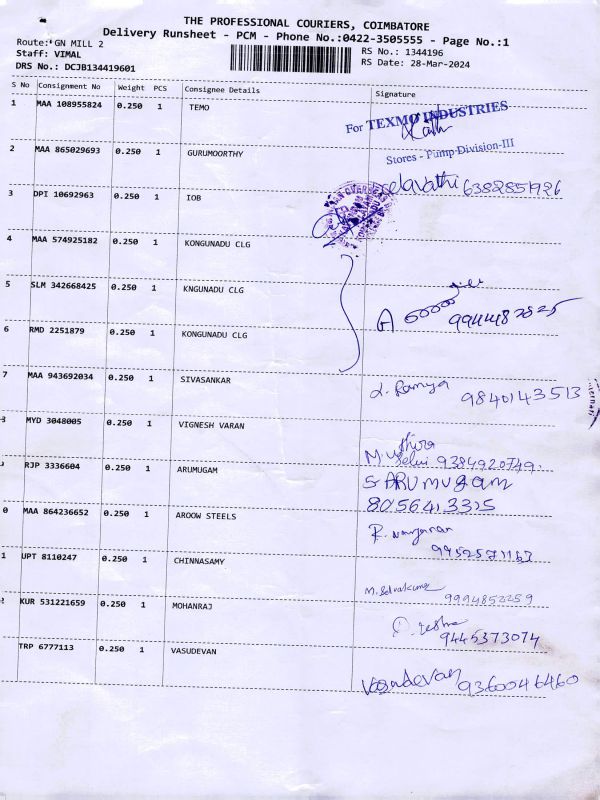 THE PROFESSIONAL COURIERS, COIMBATORE
Delivery Runsheet - PCM - Phone No.:0422-3505555 - Page No.:1
Route: GN MILL 2
Staff: VIMAL
DRS No.: DCJB134419601
RS No.: 1344196
RS Date: 28-Mar-2024
S No Consignment No Weight PCS Consignee Details Signature
1 MAA 108955824 0.250 1 TEMO
For TEXMO INDUSTRIES
Stores - Pump Division-III
2 MAA 865029693 0.250 1 GURUMOORTHY
6382851926
3 DPI 10692963 0.250 1 IOB
4 MAA 574925182 0.250 1 KONGUNADU CLG
5 SLM 342668425 0.250 1 KNGUNADU CLG
6 RMD 2251879 0.250 1 KONGUNADU CLG
7 MAA 943692034 0.250 1 SIVASANKAR
9840143513
MYD 3048005 0.250 1 VIGNESH VARAN
9384920749.
RJP 3336604 0.250 1 ARUMUGAM
S ARUMUGAM
8056413315
0 MAA 864236652 0.250 1 AROOW STEELS
1 UPT 8110247 0.250 1 CHINNASAMY
M. Selvakumar
9994852259
KUR 531221659 0.250 1 MOHANRAJ
9445373074
TRP 6777113 0.250 1 VASUDEVAN
Vasudevan 9360046460